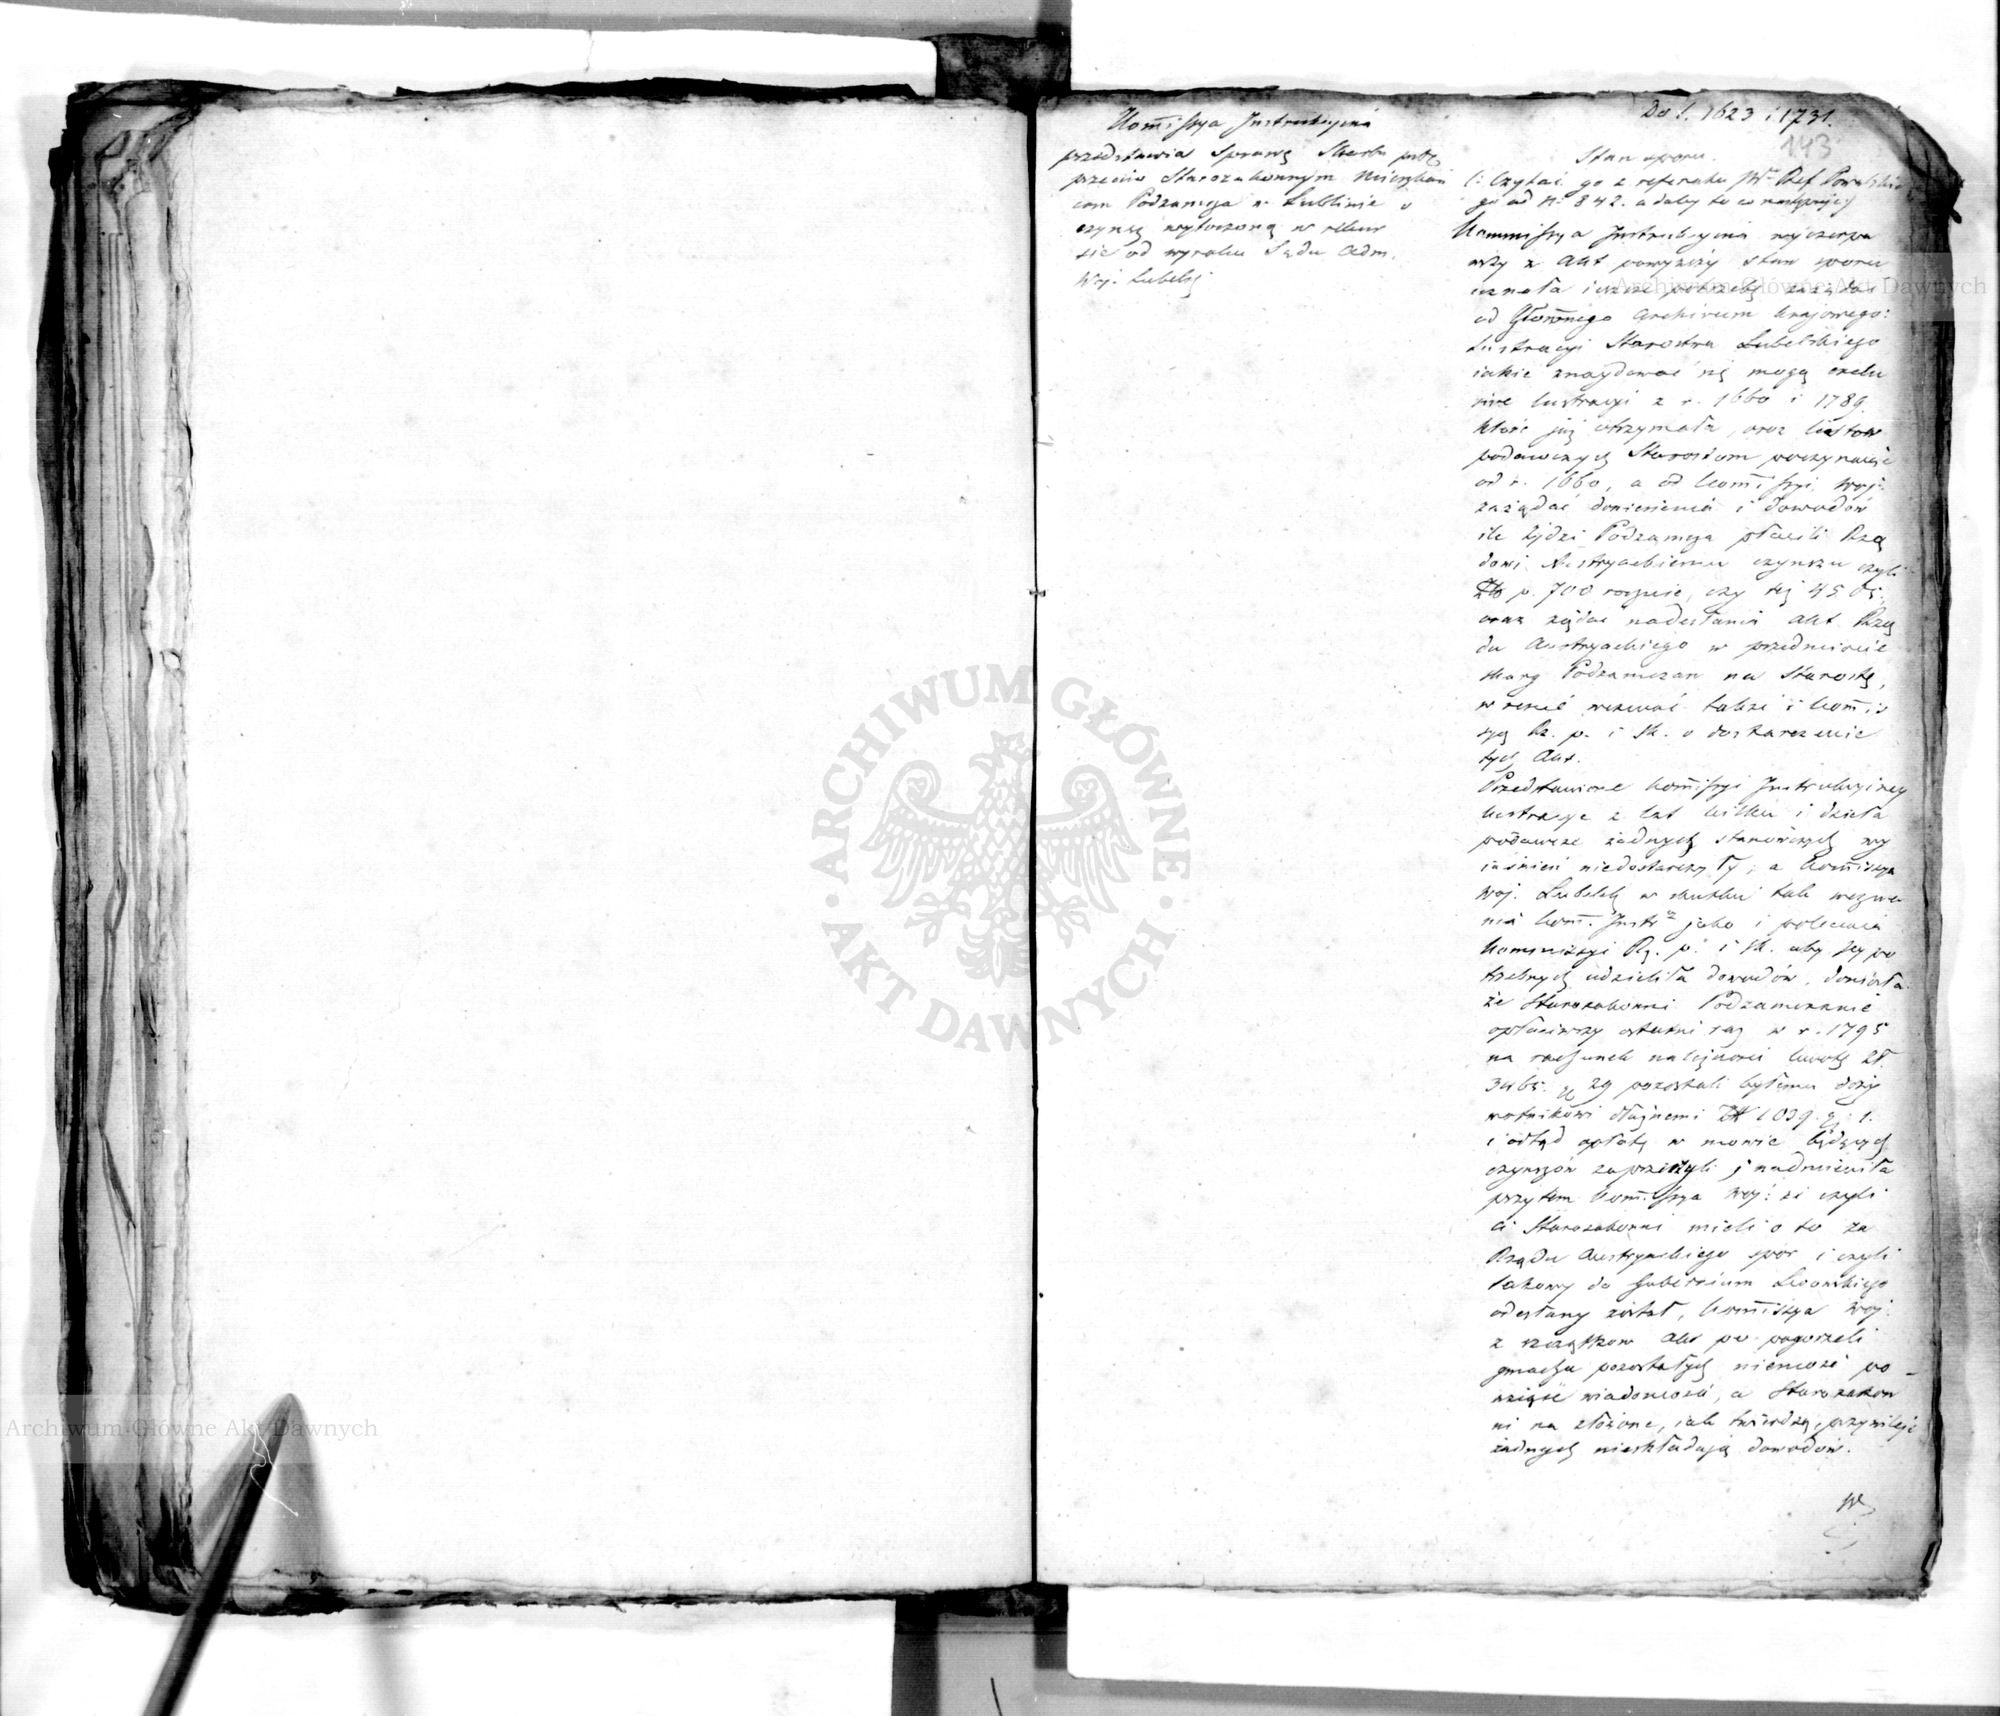 Do l. 1623 i 1731.
143
Kom̄issya Instrukcyina
przedstawia Sprawę Skarbu pub:
przeciw Starozakonnym Mieszkań
com Podzamcza w Lublinie o
czynsz wytoczoną w rekur
sie od wyroku Sądu Adm.
Woj. Lubelsk
Stan sporu.
(: Czytać go z referatu JWo Ref Powalskie
go od N. 842. a daley to co następuje
Kommissya Instrukcyina wyczerpa
wszy z Akt powyższy stan sporu
uznała ieszcze potrzebę zażądać
od Głównego Archivum krajowego:
Lustracyi Starostwa Lubelskiego
iakie znaydować się mogą oprócz
lustracyi z r. 1660 i 1789.
które już otrzymała, oraz listów
podawczych Starostom poczynając
od r. 1660, a od Kom̄issyi Woj:
zażądać doniesienia i dowodów
ile Żydzi Podzamcza płacili Rzą
dowi Austryackiemu czynszu czyli
Złp. 700 rocznie, czy też 4505.
oraz żądać nadesłania Akt Rzą
du Austryackiego w przedmiocie
skarg Podzamczan na Starostę,
w resz wezwać także i Kom̄is
syą Rz. p. i Sk. o dostarczenie
tych Akt.
Przedstawione Kom̄issyi Instrukcyiney
lustracye z lat kilku i dzieła
podawcze żadnych stanowczych wy
iaśnień niedostarczyły; a Kom̄issya
Woj. Lubelsk w skutku tak wezwa
nia Kom. Instr jako i polecenia
Kommissyi Rz. p. i Sk. aby jey po
trzebnych udzieliła dowodów, doniosła
że Starozakonni Podzamczanie
opłaciwszy ostatni raz w r. 1795
na rachunek należności kwotę zł.
3465. g 29 pozostali byłemu doży
wotnikowi dłużnemi Zł 1039. g. 1.
i odtąd opłatę w mowie będących
czynszów zaprzeczyli; nadmieniła
przytem Kom̄issya Woj: że czyli
ci Starozakonni mieli o to za
Rządu Austryackiego spór i czyli
takowy do Gubernium Lwowskiego
odesłany został, Kom̄issya Woj:
z szczątków Akt po pogorzeli
gmachu pozostałych niemoże po
wziąść wiadomości, a Starozakon
ni na złożone, iak twierdzą, przywileje
żadnych nieskładają dowodów.